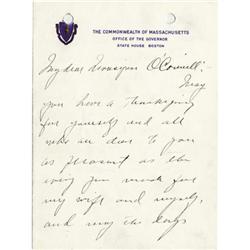 THE COMMONWEALTH OF MASSACHUSETTS
OFFICE OF THE GOVERNOR
STATE HOUSE BOSTON
My dear Monsignor O'Connell:
May
you have a Thanksgiving
for yourself and all
who are dear to you
as pleasant as the
one you made for
my wife and myself,
and may the days